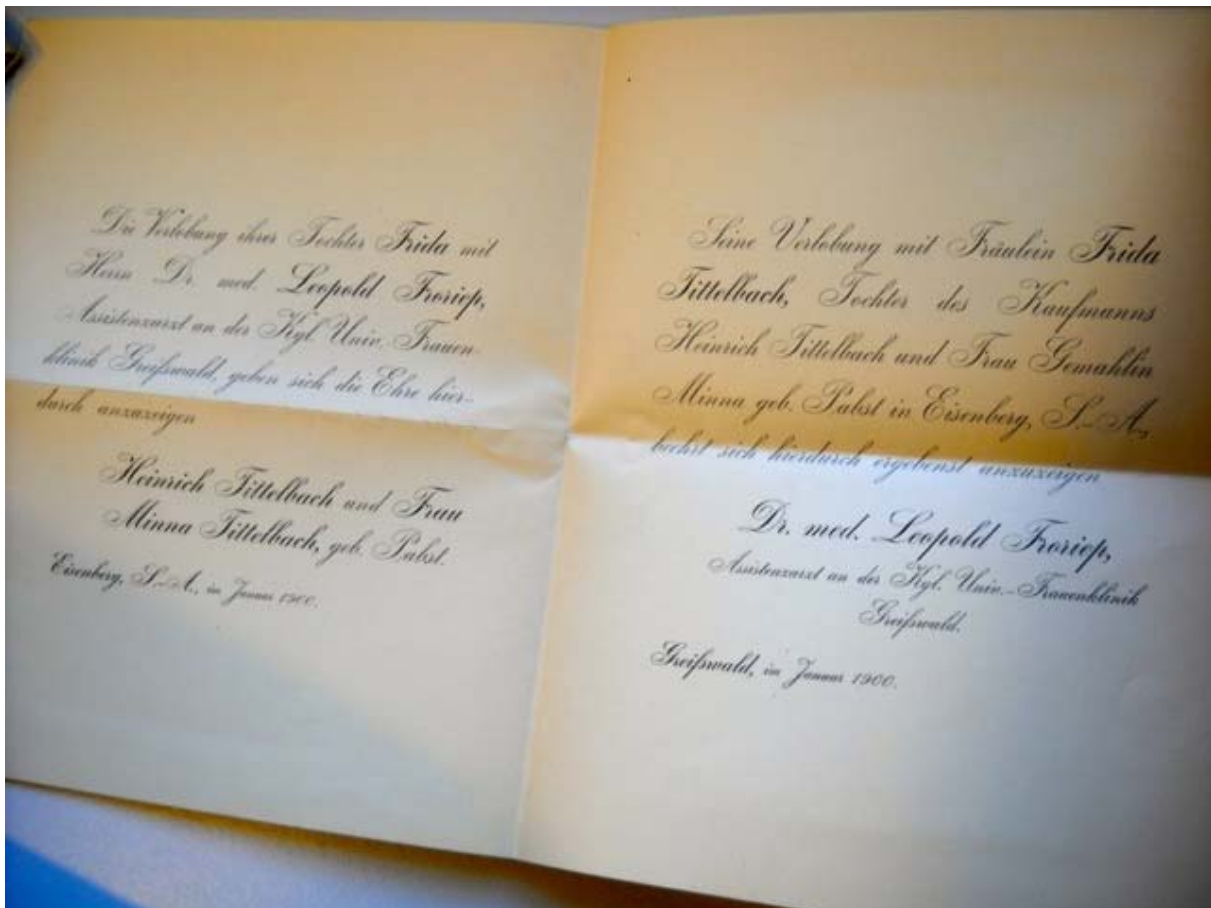 Die Verlobung ihrer Tochter Frida mit
Herrn Dr. med. Leopold Froriep,
Assistenzarzt an der Kgl. Univ. Frauen-
klinik Greifswald, geben sich die Ehre hier-
durch anzuzeigen
Heinrich Tittelbach und Frau
Minna Tittelbach, geb. Pabst.
Eisenberg, S.-A., im Januar 1900.
Seine Verlobung mit Fräulein Frida
Tittelbach, Tochter des Kaufmanns
Heinrich Tittelbach und Frau Gemahlin
Minna geb. Pabst in Eisenberg, S.-A.,
beehrt sich hierdurch ergebenst anzuzeigen
Dr. med. Leopold Froriep,
Assistenzarzt an der Kgl. Univ.-Frauenklinik
Greifswald.
Greifswald, im Januar 1900.